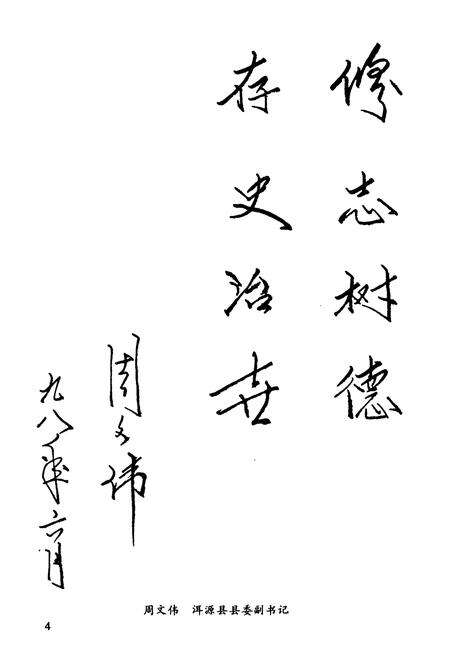 修志树德
存史治世
周文伟
九八年六月
周文伟 洱源县县委副书记
4